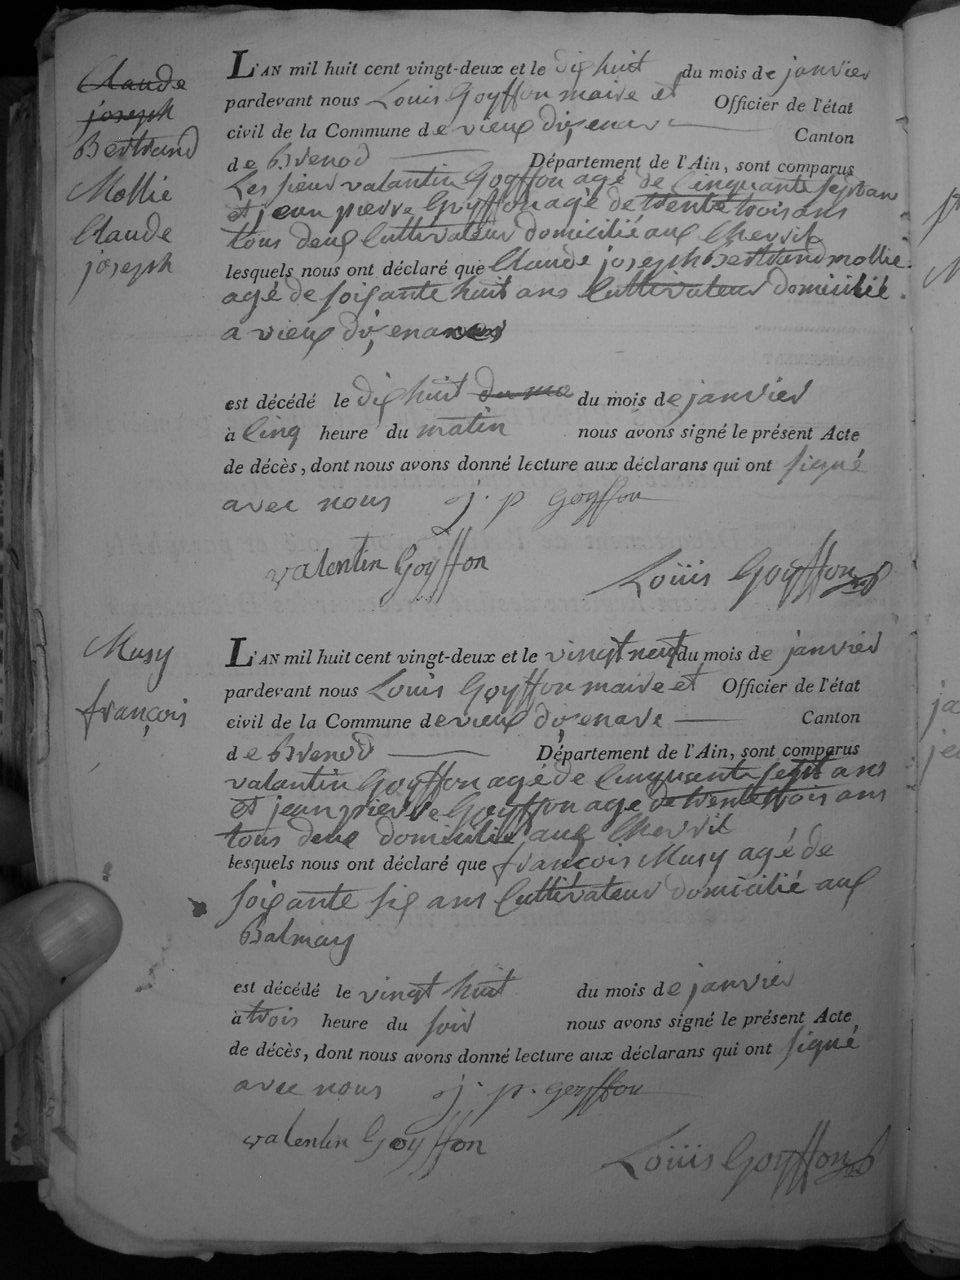 Claude
joseph
Bertrand
Mollie
Claude
joseph
L'AN mil huit cent vingt-deux et le dix huit du mois de janvier
pardevant nous Louis Goyffon maire et Officier de l'état
civil de la Commune de vieux d'izenave Canton
de Brenod Département de l'Ain, sont comparus
Les sieur valantin Goyffon agé de Cinquante sept ans
et jean pierre Goyffon agé de trente trois ans
tous deux Cultivateur domicilié aux Chevril
lesquels nous ont déclaré que Claude joseph Bertrand mollie
agé de soixante huit ans Cultivateur domicilié
a vieux d'izenave
est décédé le dix huit du ma du mois de janvier
à Cinq heure du matin nous avons signé le présent Acte
de décès, dont nous avons donné lecture aux déclarans qui ont signé
avec nous j. p goyffon
valentin Goyffon Louis Goyffon
Musy
françois
L'AN mil huit cent vingt-deux et le vingt neuf du mois de janvier
pardevant nous Louis Goyffon maire et Officier de l'état
civil de la Commune de vieux d'izenave Canton
de Brenod Département de l'Ain, sont comparus
valantin Goyffon agé de Cinquante sept ans
et jean pierre Goyffon agé de trente trois ans
tous deux domicilié aux Chevril
lesquels nous ont déclaré que françois Musy agé de
soixante six ans Cultivateur domicilié aux
Balmay
est décédé le vingt huit du mois de janvier
à trois heure du soir nous avons signé le présent Acte
de décès, dont nous avons donné lecture aux déclarans qui ont signé
avec nous j. p. goyffon
valentin Goyffon Louis Goyffon